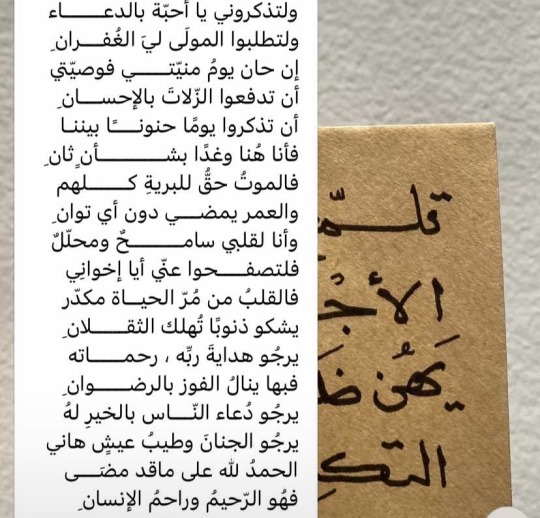 ولتذكروني يا أحبّة بالدعـــــاء
ولتطلبوا المولَى ليَ الغُفـــرانِ
إن حان يومُ منيّتـــــي فوصيّتي
أن تدفعوا الزّلاتَ بالإحســـانِ
أن تذكروا يومًا حنونــــًا بيننـا
فأنا هُنا وغدًا بشـــــــــأنٍ ثانِ
فالموتُ حقٌّ للبريةِ كـــــلهم
والعمر يمضـــي دون أي توانِ
وأنا لقلبي سامـــــــحٌ ومحلّلٌ
فلتصفــــحوا عنّي أيا إخوانِي
فالقلبُ من مُرّ الحيــاة مكدّر
يشكو ذنوبًا تُهلك الثقـــــلانِ
يرجُو هدايةَ ربِّه ، رحمــــاته
فبها ينالُ الفوز بالرضـــوانِ
يرجُو دُعاء النّـــاس بالخيرِ لهُ
يرجُو الجنانَ وطيبُ عيشٍ هاني
الحمدُ لله على ماقد مضَــى
فهُو الرّحيمُ وراحمُ الإنسانِ
قلـمّ
الأجْ
يَهُن
التك